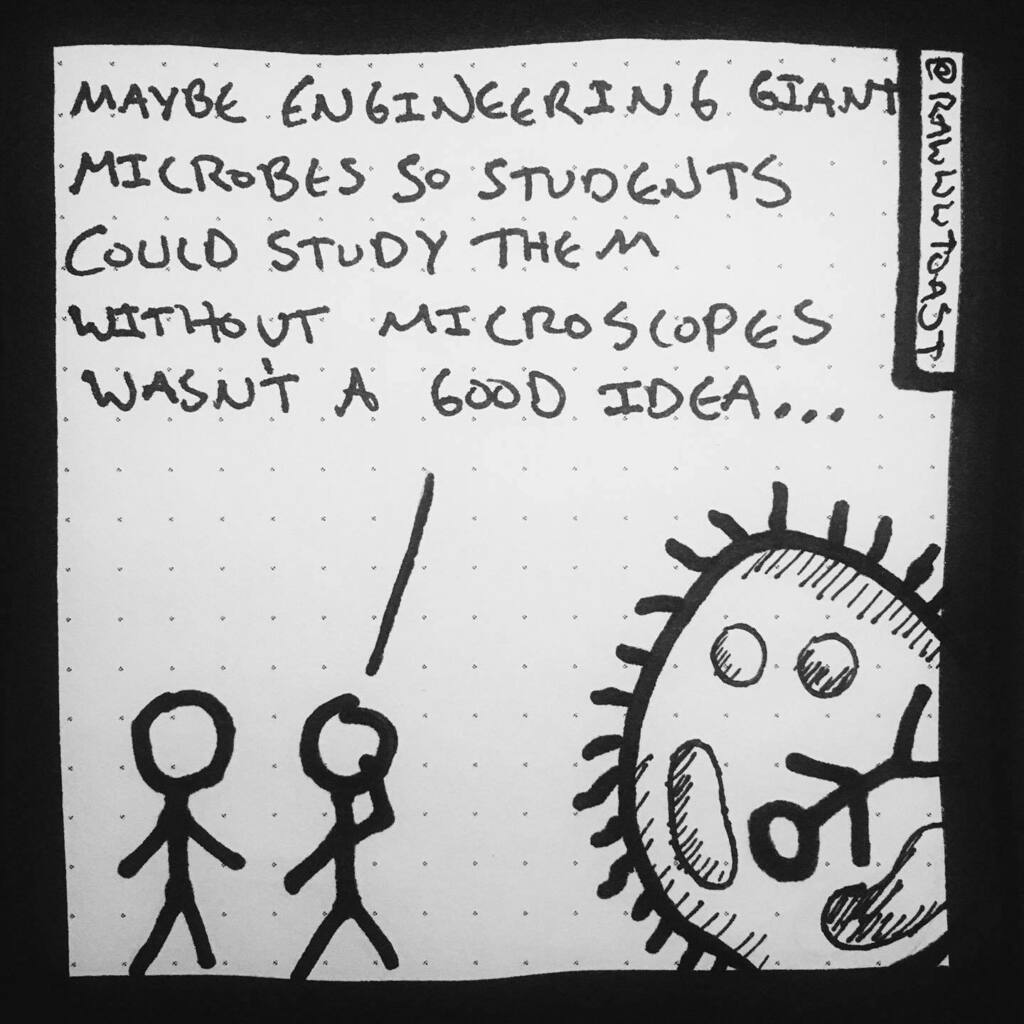 MAYBE ENGINEERING GIANT
MICROBES SO STUDENTS
COULD STUDY THEM
WITHOUT MICROSCOPES
WASN'T A GOOD IDEA...
@RAWWWTOAST